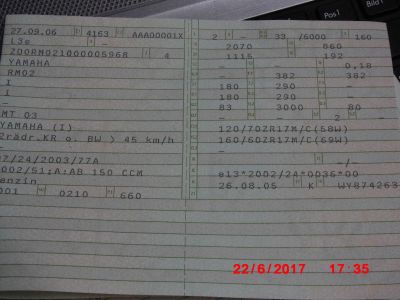 Pos1
Bild
27.09.06 4163 AAA00001X
L3e -
ZD0RM021000005968 4
YAMAHA
RM02
I
I
-
MT 03
YAMAHA (I)
Zrädr.KR o. BW > 45 km/h
-
97/24/2003/77A
2002/51;A:AB 150 CCM
Benzin
001 0210 660
2 - 33 /6000 160
2070 860
1115 192
- - 0,18
- 382 382
180 290 -
180 290 -
83 3000 80
- 2 -
120/70ZR17M/C(58W)
160/60ZR17M/C(69W)
-/-
e13*2002/24*0036*00
26.08.05 K WY874263
22/6/2017 17:35